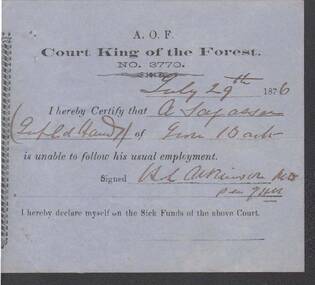 A. O. F.
Court King of the Forest.
NO. 3770.
July 29th 1876
I hereby Certify that A
of Iron Bark
is unable to follow his usual employment.
Signed H L Atkinson
I hereby declare myself on the Sick Funds of the above Court.